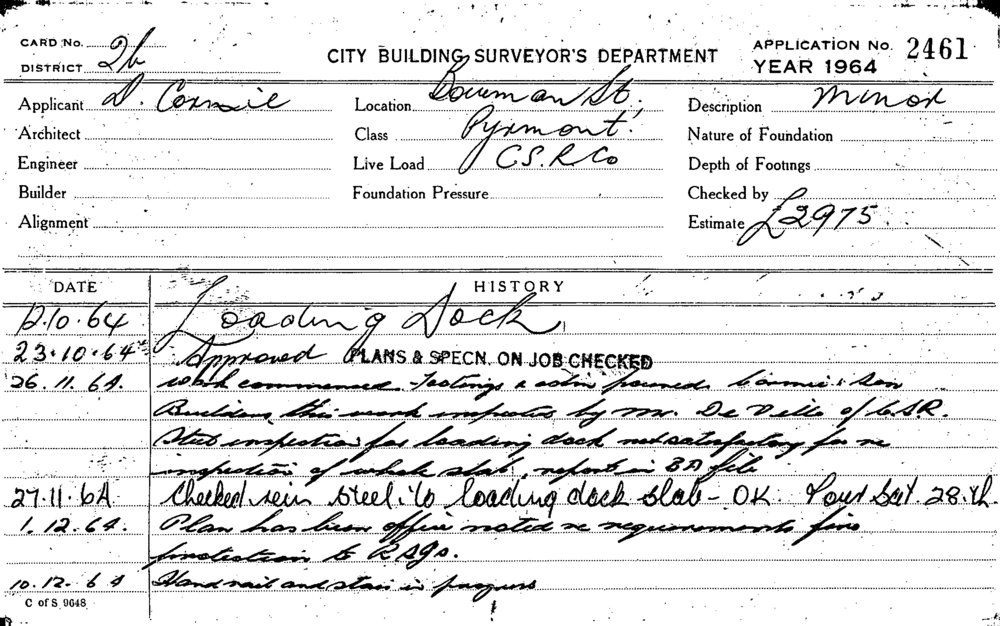 CARD No. 2b
DISTRICT
CITY BUILDING SURVEYOR'S DEPARTMENT
APPLICATION No. 2461
YEAR 1964
Applicant D. Cormie
Location Bowman St,
Description Minor
Architect
Class Pyrmont.
Nature of Foundation
Engineer
Live Load C.S.R Co
Depth of Footings
Builder
Foundation Pressure
Checked by
Alignment
Estimate £2975
DATE
HISTORY
12.10.64 Loading Dock
23.10.64 Approved PLANS & SPECN. ON JOB CHECKED
26.11.64. Work commenced. Footings & colm poured. Cormie & Son
Builders, this work inspected by Mr. De Ville of C.S.R.
Steel inspection for loading dock not satisfactory for re
inspection of whole slab, report in BA file
27.11.64 Checked rein steel to loading dock slab - OK. Pour Sat. 28.th
1.12.64. Plan has been office noted re requirements fire
protection to RSJs.
10.12.64 Hand rail and stair in progress
C of S 9648